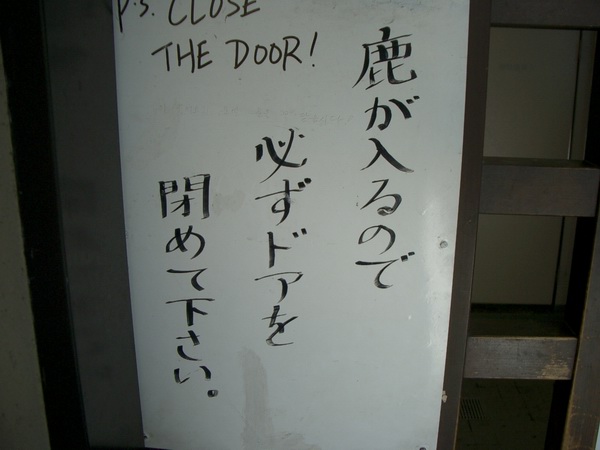 P.S. CLOSE
THE DOOR!
鹿が入るので
必ずドアを
閉めて下さい。